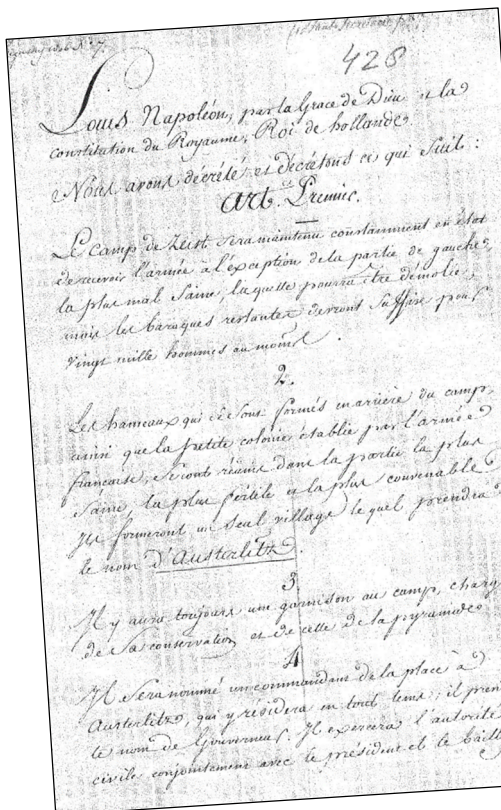 428
Louis Napoléon, par la Grace de Dieu et la
constitution du Royaume, Roi de hollande.
Nous avons décrété et décrétons ce qui suit :
Art. Premier.
Le camp de Zeist sera maintenu constamment en état
de recevoir l'armée a l'exception de la partie de gauche,
la plus mal saine, laquelle pourra être démolie,
mais les baraques restantes devront suffire pour
vingt mille hommes au moins.
2.
Les hameaux qui se sont formés en arrière du camp,
ainsi que la petite colonie établie par l'armée
française, seront réunis dans la partie la plus
saine, la plus fertile et la plus convenable.
Ils formeront un seul village lequel prendra
le nom D'Austerlitz.
3.
Il y aura toujours une garnison au camp, charg
de sa conservation et de celle de la pyramide
4.
Il sera nommé un commandant de la place à
Austerlitz, qui y résidera en tout tems; il pren
le nom de Gouverneur. Il exercera l'autorité
civile conjointement avec le président et le baill